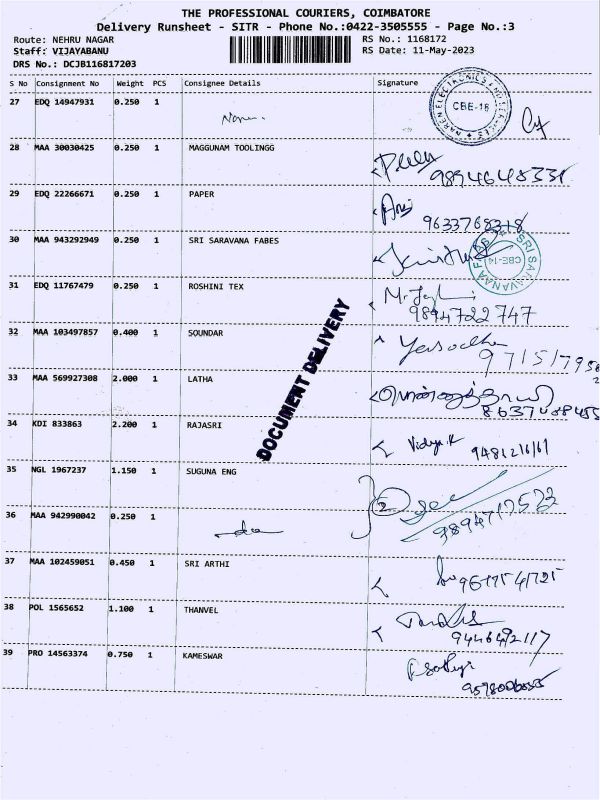 THE PROFESSIONAL COURIERS, COIMBATORE
Delivery Runsheet - SITR - Phone No.:0422-3505555 - Page No.:3
Route: NEHRU NAGAR RS No.: 1168172
Staff: VIJAYABANU RS Date: 11-May-2023
DRS No.: DCJB116817203
S No Consignment No Weight PCS Consignee Details Signature
27 EDQ 14947931 0.250 1
NAREN ELECTRONICS AND SERVICES
CBE-18
28 MAA 30030425 0.250 1 MAGGUNAM TOOLINGG
9894648331
29 EDQ 22266671 0.250 1 PAPER
9633768318
30 MAA 943292949 0.250 1 SRI SARAVANA FABES
SRI SARAVANAA FAB
CBE-14
31 EDQ 11767479 0.250 1 ROSHINI TEX
9894722747
32 MAA 103497857 0.400 1 SOUNDAR
Yasodha
33 MAA 569927308 2.000 1 LATHA
34 KDI 833863 2.200 1 RAJASRI
Vidya.R
35 NGL 1967237 1.150 1 SUGUNA ENG
36 MAA 942990042 0.250 1
37 MAA 102459051 0.450 1 SRI ARTHI
38 POL 1565652 1.100 1 THANVEL
39 PRO 14563374 0.750 1 KAMESWAR
DOCUMENT DELIVERY